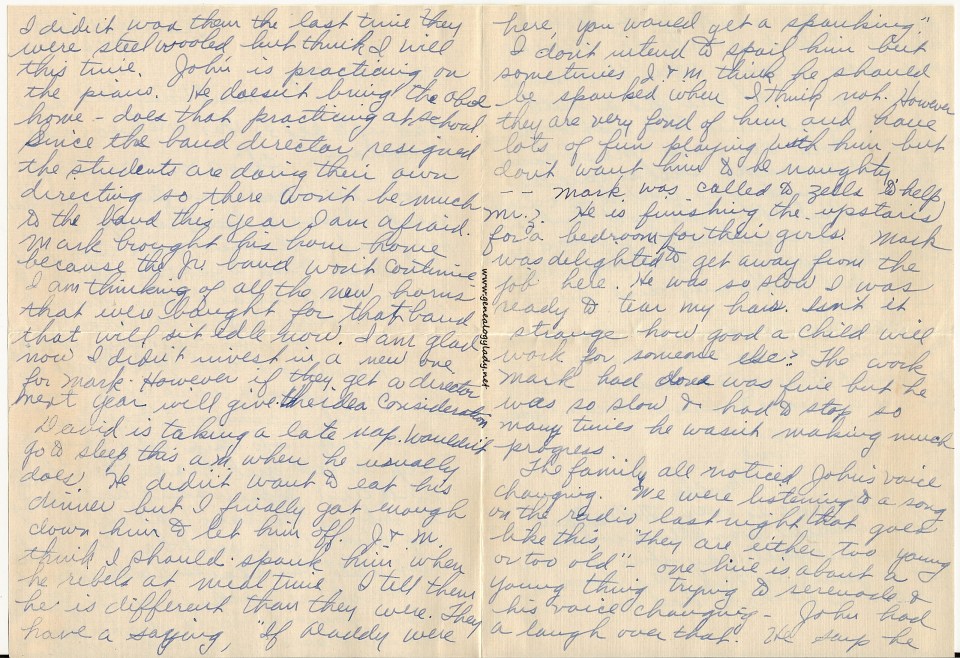 I didn't wax them the last time they
were steel wooled but think I will
this time. John is practicing on
the piano. He doesn't bring the oboe
home - does that practicing at school.
Since the band director resigned
the students are doing their own
directing so there won't be much
to the band this year I am afraid.
Mark brought his horn home
because the Jr. band won't continue.
I am thinking of all the new horns
that were bought for that band
that will sit idle now. I am glad
now I didn't invest in a new one
for Mark. However if they get a director
next year will give the idea consideration
David is taking a late nap. Wouldn't
go to sleep this a.m. when he usually
does. He didn't want to eat his
dinner but I finally got enough
down him to let him off. J. & M.
think I should spank him when
he rebels at meal time. I tell them
he is different than they were. They
have a saying, "If Daddy were
here, you would get a spanking."
I don't intend to spoil him but
sometimes J. & M. think he should
be spanked when I think not. However
they are very fond of him and have
lots of fun playing with him but
don't want him to be naughty
-- Mark was called to Zells to help
Mr. Z. He is finishing the upstairs
for a bedroom for their girls. Mark
was delighted to get away from the
job here. He was so slow I was
ready to tear my hair. Isn't it
strange how good a child will
work for someone else? The work
Mark had done was fine but he
was so slow & had to stop so
many times he wasn't making much
progress
The family all noticed John's voice
changing. We were listening to a song
on the radio last night that goes
like this, "They are either too young
or too old" - one line is about a
young thing trying to serenade &
his voice changing - John had
a laugh over that. He says he
www.genealogylady.net